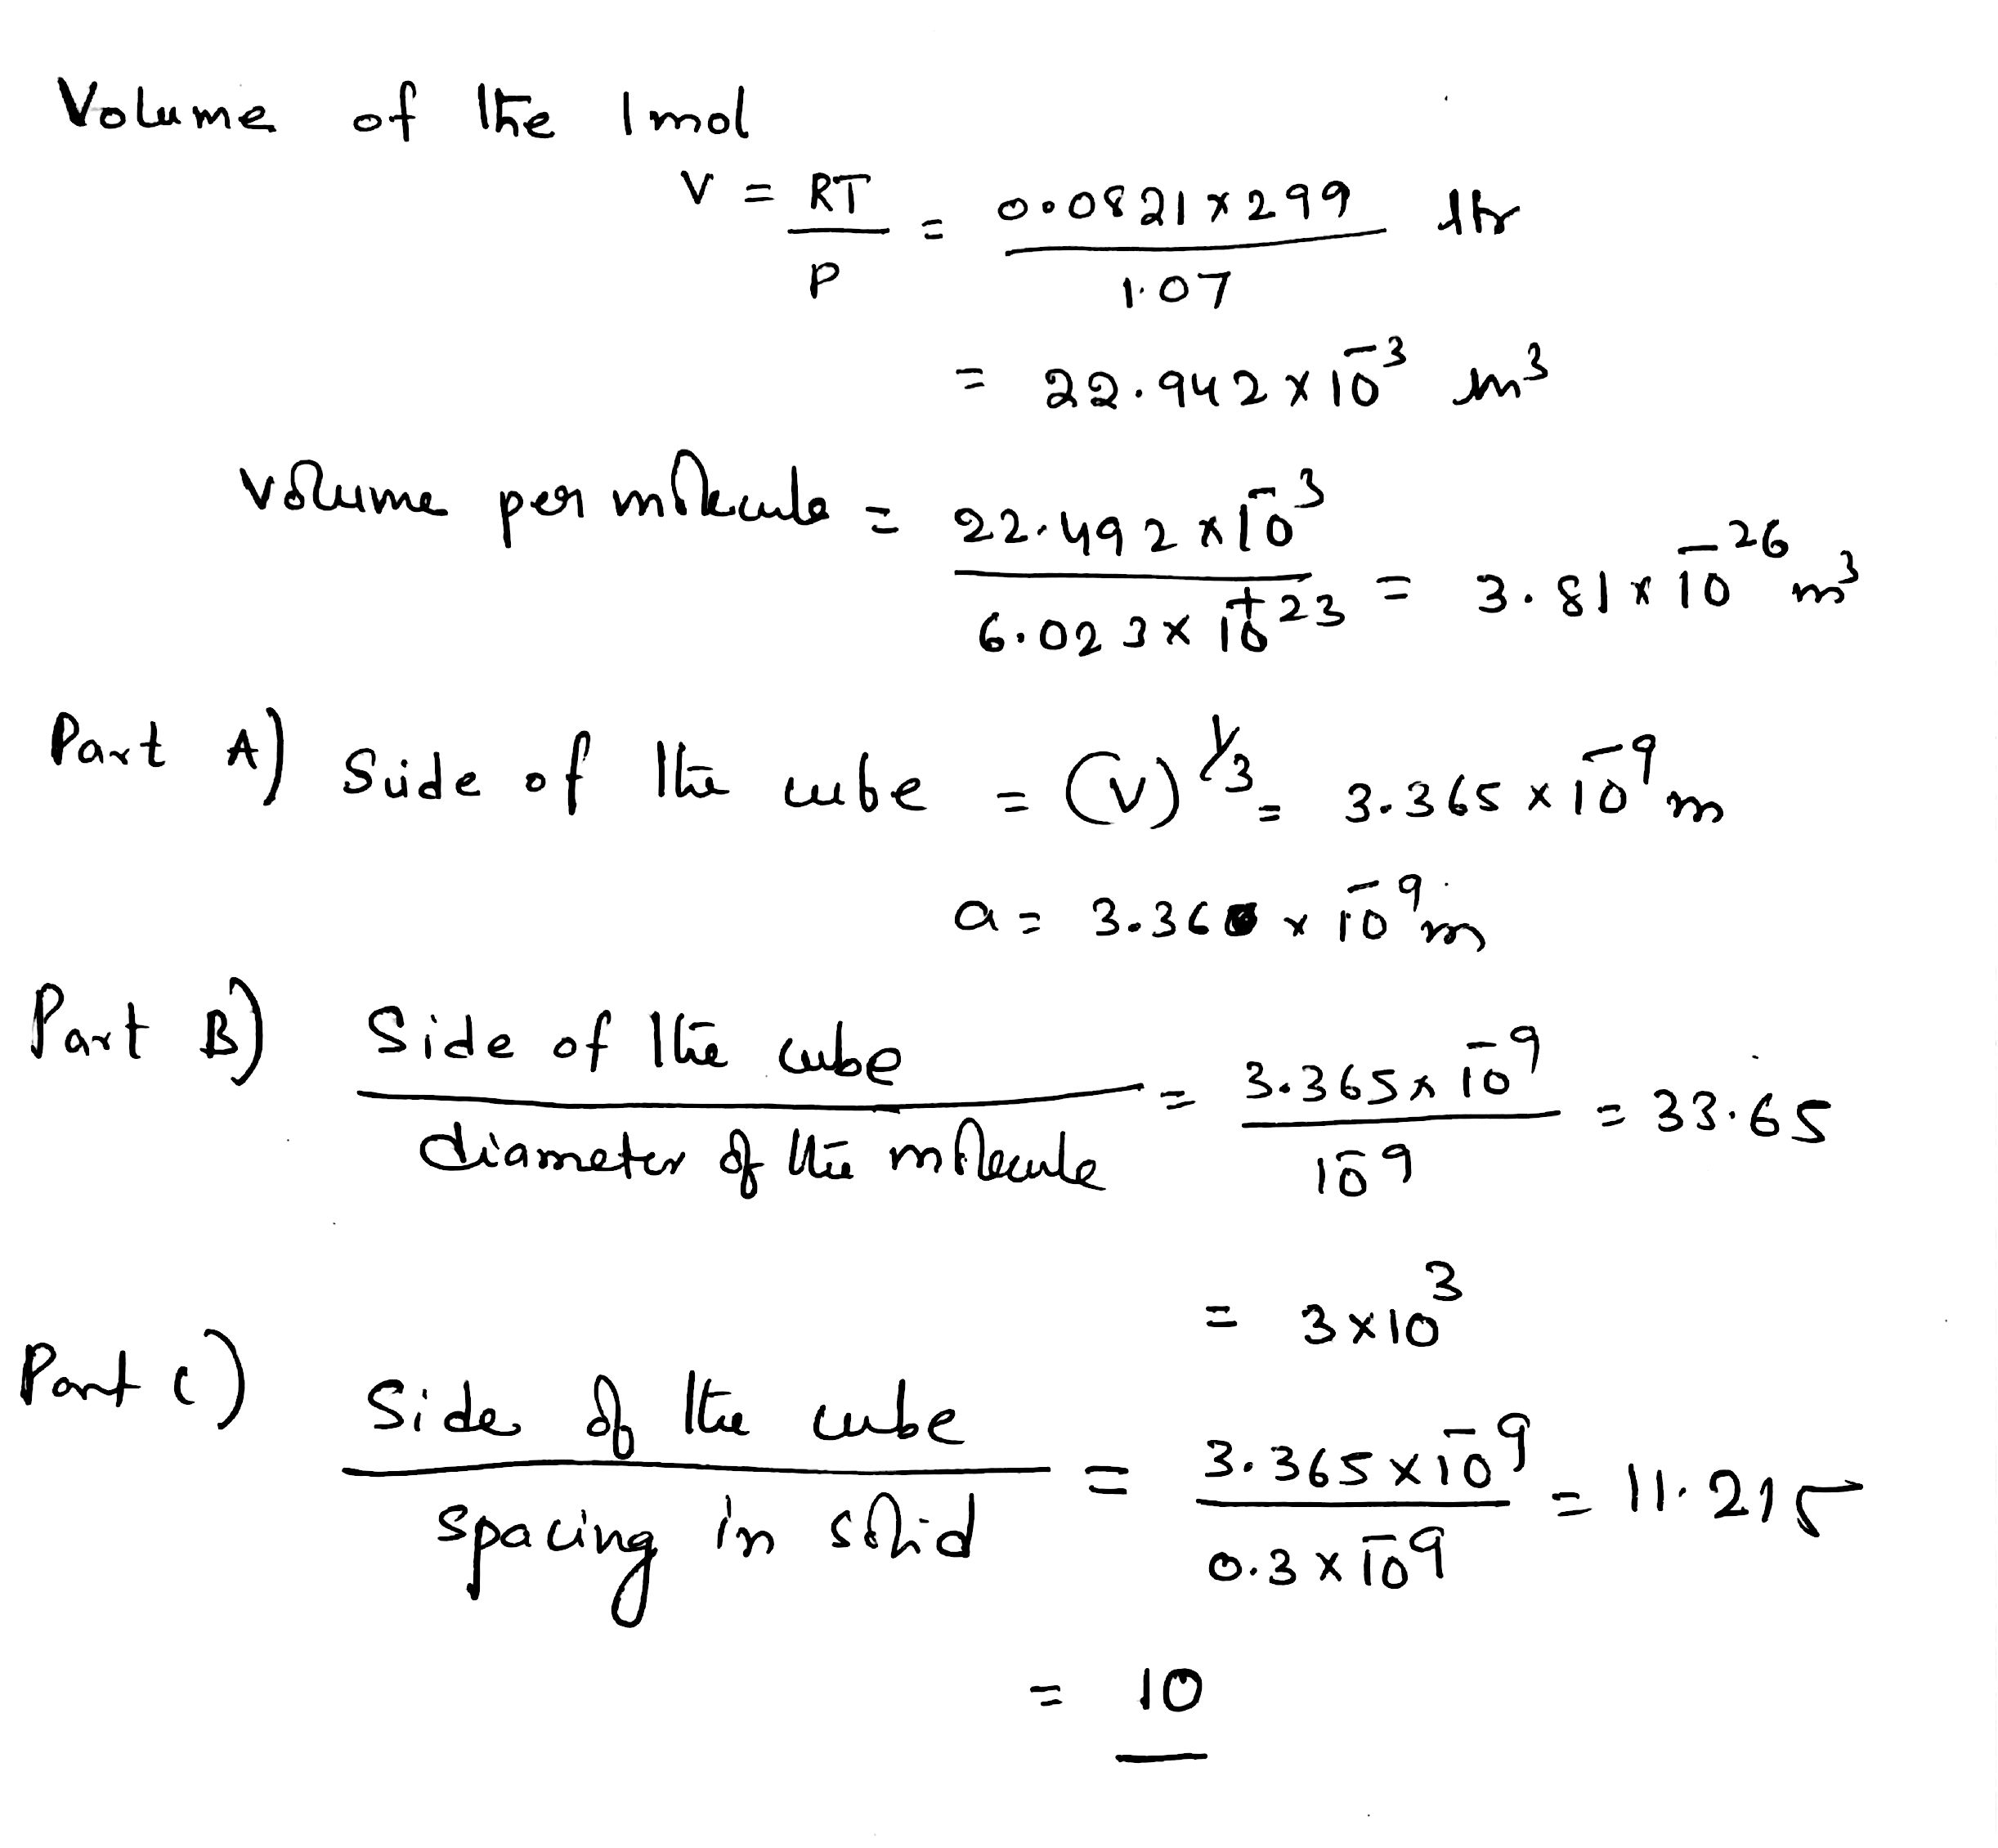 Volume of the 1mol
V = RT/P = 0.0821 x 299 / 1.07 ltr
= 22.942 x 10^-3 m^3
Volume per molecule = 22.492 x 10^-3 / 6.023 x 10^+23 = 3.81 x 10^-26 m^3
Part A) Side of the cube = (V)^1/3 = 3.365 x 10^-9 m
a = 3.36 x 10^-9 m
Part B) Side of the cube / diameter of the molecule = 3.365 x 10^-9 / 10^-9 = 33.65
= 3 x 10^3
Part C) Side of the cube / spacing in solid = 3.365 x 10^-9 / 0.3 x 10^-9 = 11.215
= 10